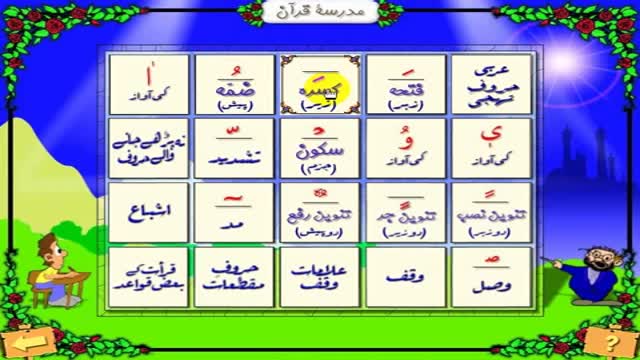 مدرسۂ قرآن
عربی حروف تہجی
فتحہ (زبر)
کسرہ (زیر)
ضمّہ (پیش)
کی آواز
کی آواز
کی آواز
سکون (جزم)
تشدید
نہ پڑھے جانے والے حروف
تنوین نصب (دوزبر)
تنوین جر (دوزیر)
تنوین رفع (دوپیش)
مد
اشباع
وصل
وقف
علامات وقف
حروف مقطعات
قرأت کے بعض قواعد
?